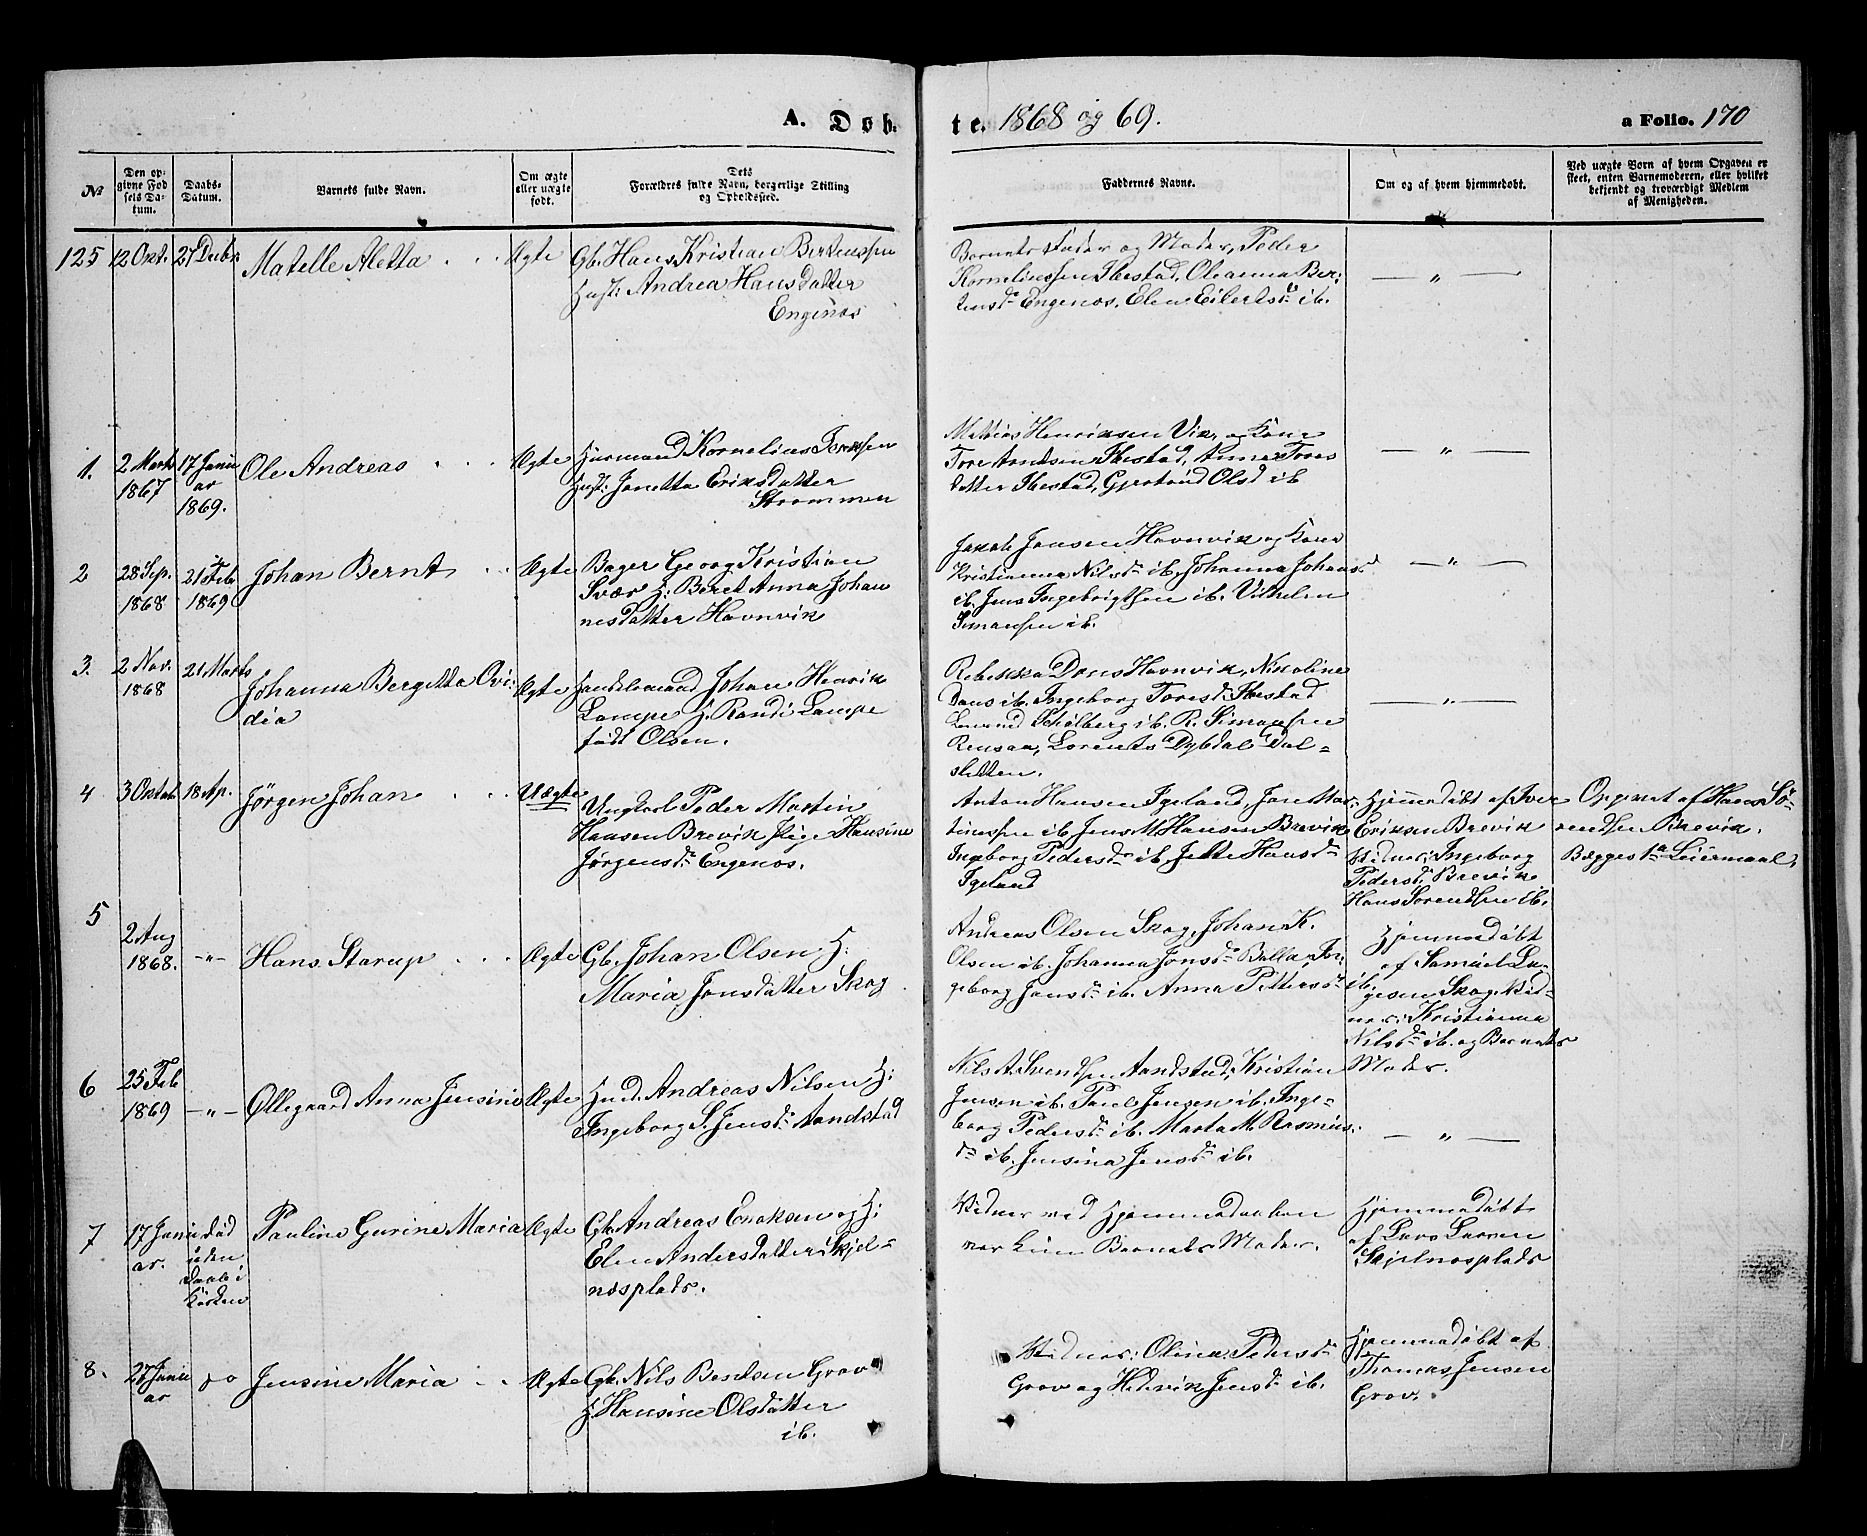 A. Døb- te. 1868 og 69. a Folio. 170
No
Den op-
givne Fød
sels Da-
tum.
Daabs-
Datum.
Barnets fulde Navn.
Om ægte
eller uægte
født.
Dets
Forældres fulde Navn, borgerlige Stilling
og Opholdssted.
Faddernes Navne.
Om og af hvem hjemmedøbt.
Ved uægte Børn af hvem Opgaven er
skeet, enten Barnemoderen, eller hvilket
bekjendt og troværdigt Medlem
af Menigheden.
125
12 Okt.
27 Decbr
Matelle Aletta
Ægte
Gb. Hans Kristian Bertenssen
Hust: Andrea Hansdatter
Engenæs
Barnets Fader og Moder, Peder
Korneliussen Ibestad, Oleanna Ber-
tensdr Engenæs. Elen Eilertsdr ib.
— " —
1.
2 Marts
1867
17 Janu
ar
1869.
Ole Andreas
Ægte
Huusmand Kornelius
Hust: Janetta Eriksdatter
Strømmen
Mathias Henriksen Vik, og Kone
Tore Ibestad, Anne Tores
datter Ibestad, Gjertrud Olsd ib
— " —
2
28 Sep.
1868
21 Feb
1869
Johan Bernt
Ægte
Bager Georg Kristian
Svær H: Beret Anna Johan
nesdatter Havnvik
Jakob Jensen Havnvik og Kone
Kristianna Nilsdr ib. Johanna Johansd
ib. Jens Ingebrigtsen ib. Vilhelm
Simonsen ib.
— " —
3.
2 Nov.
1868
21 Marts
Johanna Bergitta Ovi-
dia
Ægte
Handelsmand Johan Henrik
Lampe H. Randi Lampe
født Olsen.
Rebekka Dons Havnvik, Nikoline
Dons ib. Ingeborg Toresd. Ibestad
Schølberg ib. R. Simonsen
Rensaa, Lorents Dybdal Dal-
sletten.
— " —
4
3 Oktob
18 Ap.
Jørgen Johan
Uægte
Ungkarl Peder Martin
Hansen Brevik Pige Hansine
Jørgensdr Engenæs.
Anton Hansen Igeland, Jon Mar-
tinussen ib. Jens M. Hansen Brevik
Ingeborg Pedersdr ib. Jette Hansdr
Igeland
Hjemmedøbt af Iver
Eriksen Brevik
Vidner: Ingeborg
Pedersdr Brevik
Hans Sørendsen ib.
Opgivet af Hans Sö-
rendsen Brevik.
Begges 1ste Leiermaal.
5
2 Aug
1868.
— " —
Hans Starup
Ægte
Gb. Johan Olsen H:
Maria Jonsdatter Skog
Andreas Olsen Skog, Johan K.
Olsen ib. Johanna Jonsdr Bolla, In-
geborg Jonsdr ib. Anna Pettersdr ib.
Hjemmedøbt
af Samuel La-
gesen Skog. Vid-
ner: Kristianna
Nilsdr ib. og Barnets
Moder.
6
25 Feb
1869
— " —
Ollegaard Anna Jensine
Ægte
Hmd. Andreas Nilsen H:
Ingeborg S. Jensdr Aandstad
Nils A. Svendsen Aandstad, Kristian
Jensen ib. Paul Jensen ib. Inge-
borg Pedersdr ib. Marta M. Rasmus-
dr ib. Jensina Jensdr ib.
— " —
7
17 Janu
ar.
død
uden
Daab i
Kirken
Pauline Gurine Maria
Ægte
Gb. Andreas Enoksen og H:
Elen Andersdatter Skjel-
næsplads.
Vidner ved Hjemmedaaben
var kun Barnets Moder.
Hjemmedøbt
af Lars Larsen
Skjelnæsplads
8.
27 Janu
ar
do
Jensine Maria
Ægte
Gb. Nils Bertsen Grov
H. Hansine Olsdatter
ib.
Vidner: Olina Pedersdr
Grov og Hedevik Jensdr ib.
Hjemmedøbt af
Thomas Jensen
Grov.